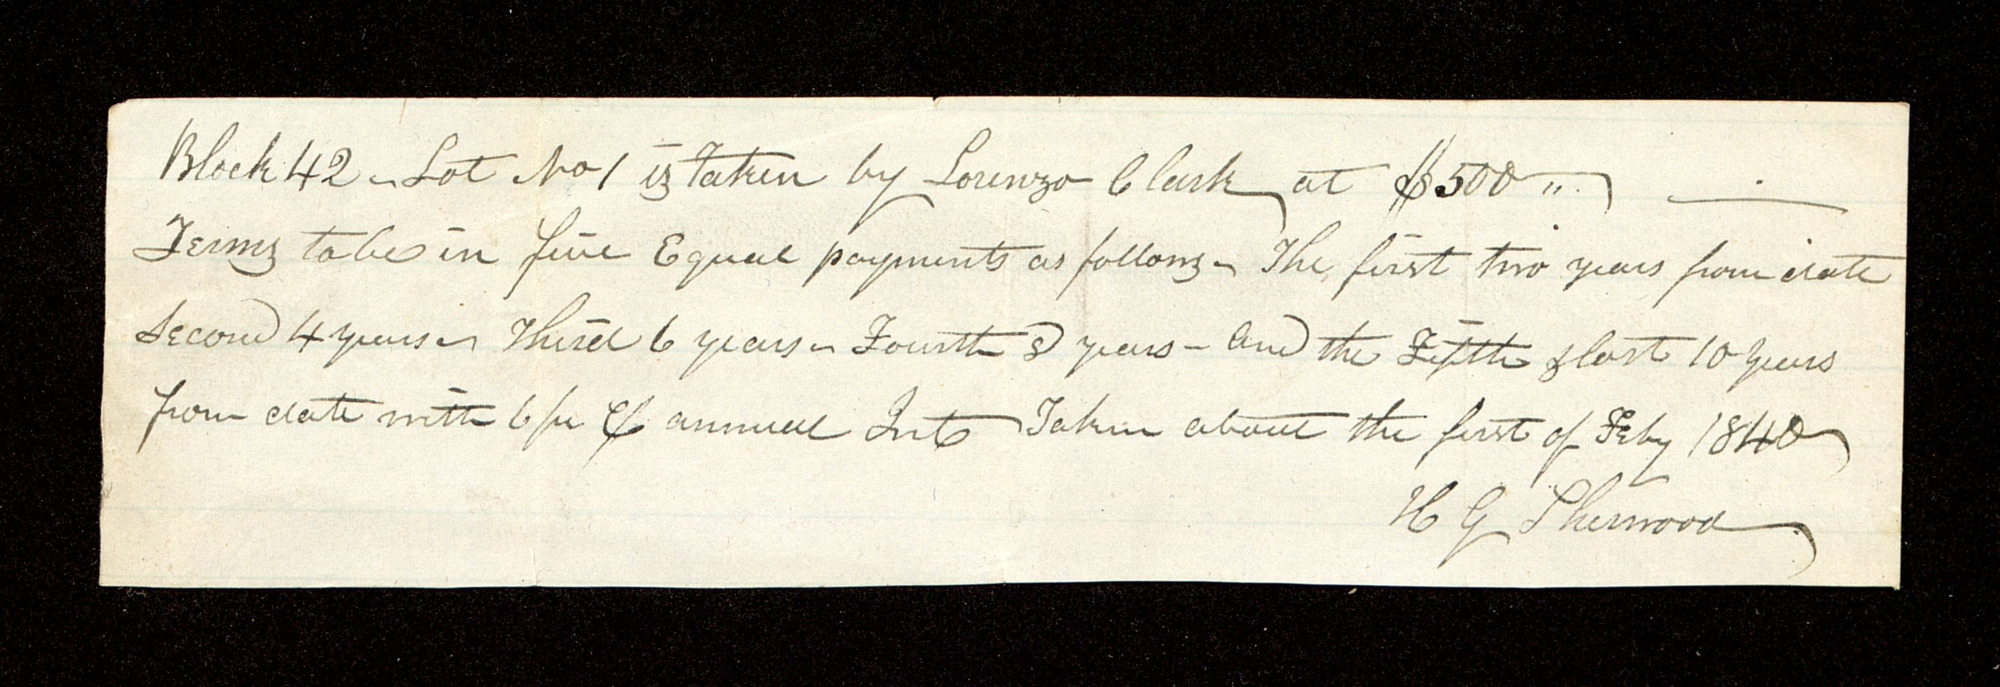 Block 42 - Lot No 1 is Taken by Lorenzo Clark at $500 " —
Terms to be in five Equal payments as follows - The first two years from date
Second 4 years - Third 6 years - Fourth 8 years - And the Fifth & last 10 years
from date with 6 pr Ct annual Int Taken about the first of Feby 1840
H G Sherwood